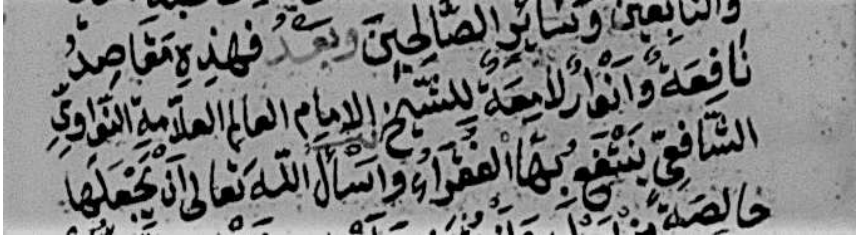 والتابعين وسائر الصالحين وبعد فهذه مقاصد
نافعة وأنوار لامعة للشيخ الإمام العالم العلامة النواوي
الشافعي ينتفع بها الفقراء وأسأل الله تعالى أن يجعلها
خالصة